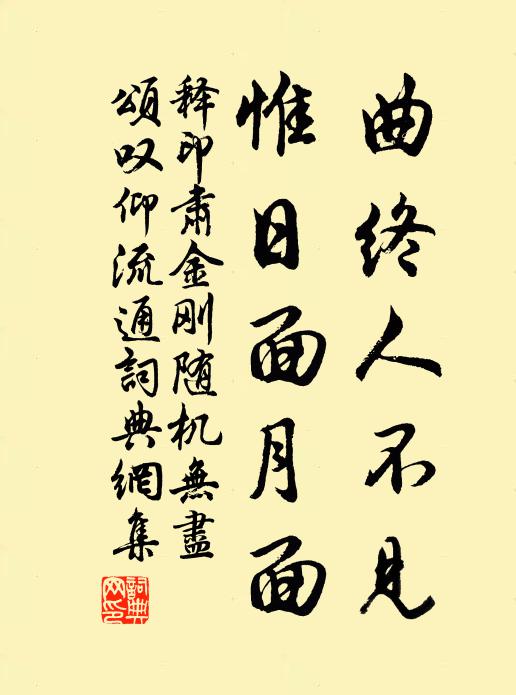 曲终人不见
惟日面月面
释印肃金刚随机無盡
頌叹仰流通詞典網集
詞典網印